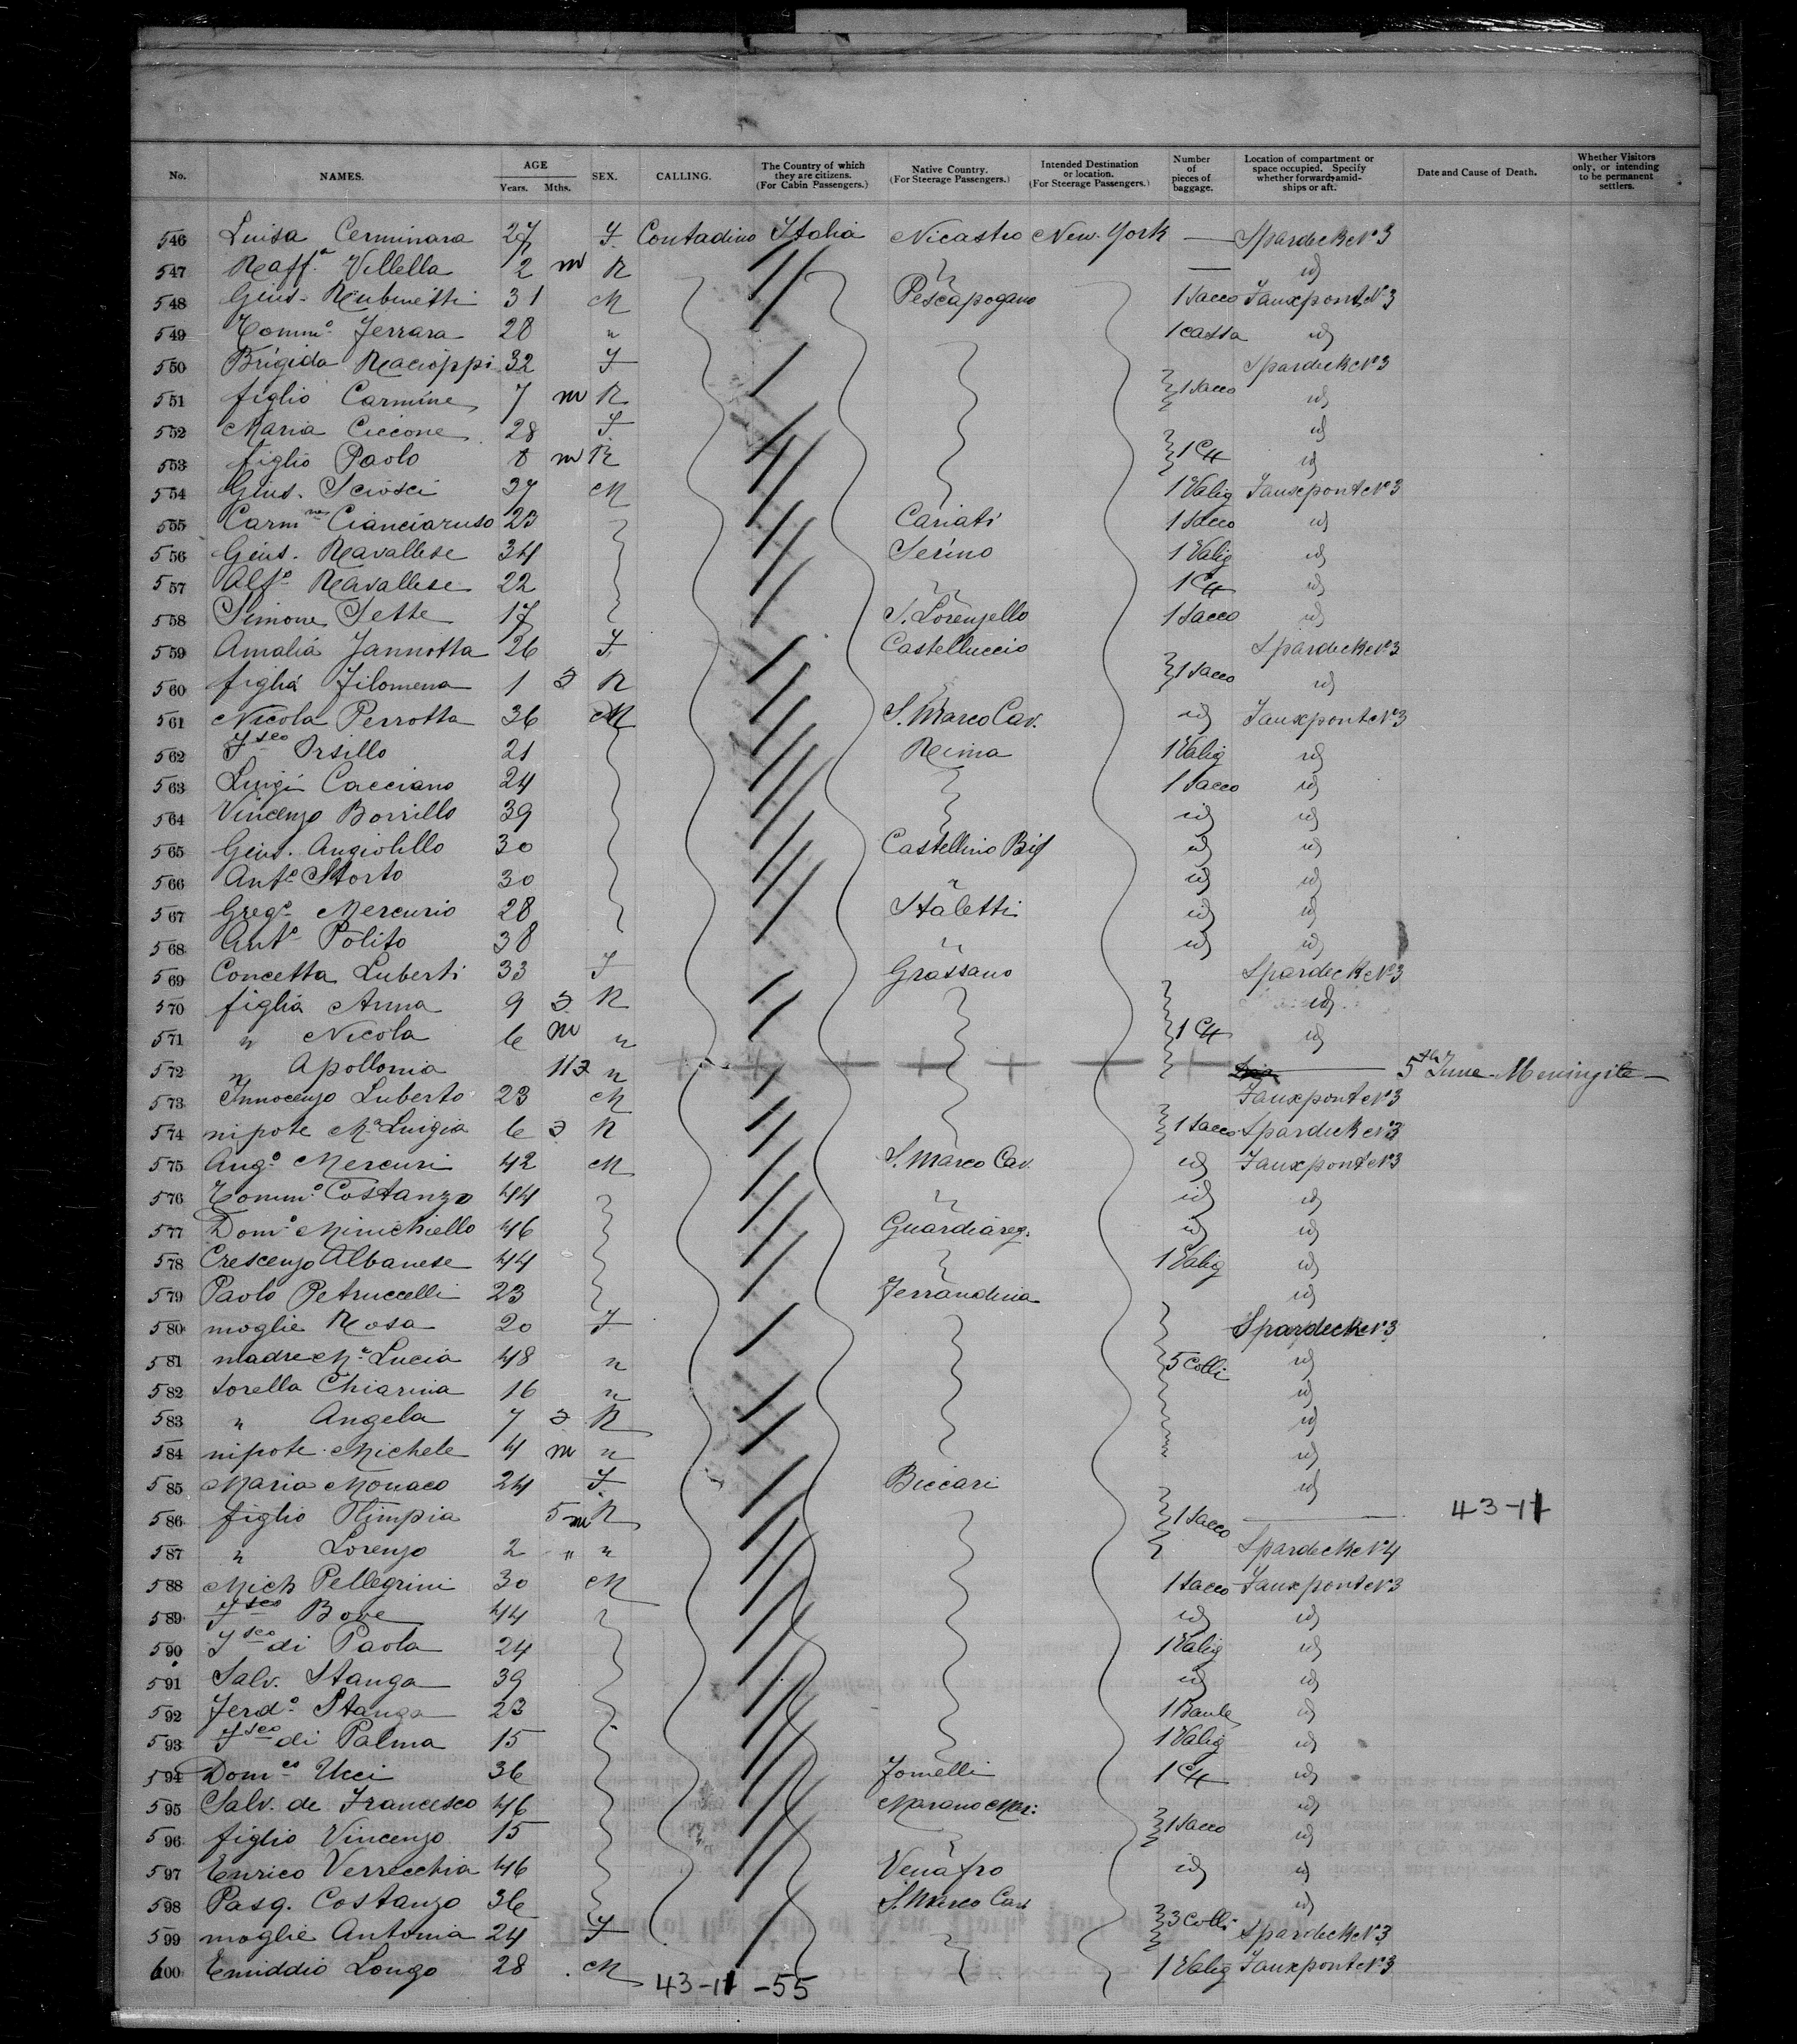 No. NAMES. AGE Years. Mths. SEX. CALLING. The Country of which they are citizens. (For Cabin Passengers.) Native Country. (For Steerage Passengers.) Intended Destination or location. (For Steerage Passengers.) Number of pieces of baggage. Location of compartment or space occupied. Specify whether forward, amidships or aft. Date and Cause of Death. Whether Visitors only, or intending to be permanent settlers.
546 Luisa Cerminara 27 F. Contadino Italia Nicastro New-York — Spardeck N°3
547 Raff.a Villella 2 m R " — id
548 Gius. Rubinetti 31 M Pescapagano 1 Sacco Fauxpont N°3
549 Tomm.o Ferrara 28 " 1 cassa id
550 Brigida Racioppi 32 F Spardeck N°3
551 figlio Carmine 7 m R 1 Sacco id
552 Maria Ciccone 28 F. id
553 figlio Paolo 8 m R 1 Cta id
554 Gius. Sciosci 37 M 1 Valig Fauxpont N°3
555 Carm.ne Cianciaruso 23 Cariati 1 Sacco id
556 Gius. Ravallese 34 Serino 1 Valig id
557 Alf.o Ravallese 22 " 1 Cta id
558 Simone Sette 17 S. Lorenzello 1 Sacco id
559 Amalia Jannotta 26 F Castelluccio Spardeck N°3
560 figlia Filomena 1 R 1 Sacco id
561 Nicola Perrotta 36 M S. Marco Cav. id Fauxpont N°3
562 F.sco Orsillo 21 Reina 1 Valig id
563 Luigi Cacciano 24 1 Sacco id
564 Vincenzo Borrillo 39 id id
565 Gius. Angiolillo 30 Castellino Bif id id
566 Ant.o Storto 30 " id id
567 Greg.o Mercurio 28 Staletti id id
568 Ant.o Polito 38 " id id
569 Concetta Luberti 33 F Grassano Spardeck N°3
570 figlia Anna 9 R id
571 " Nicola 6 m " 1 Cta id
572 " Apollonia 11 " 5th June - Meningite
573 Innocenzo Luberto 23 M Fauxpont N°3
574 nipote M.a Luigia 6 R 1 Sacco Spardeck N°3
575 Ang.o Mercuri 42 M S. Marco Cav. id Fauxpont N°3
576 Tomm.o Costanzo 44 " id id
577 Dom.o Minichiello 46 Guardiareg. id id
578 Crescenzo Albanese 44 1 Valig id
579 Paolo Petruccelli 23 Ferrandina id
580 moglie Rosa 20 F Spardeck N°3
581 madre M.a Lucia 48 " 5 Colli id
582 sorella Chiarina 16 " id
583 " Angela 7 R id
584 nipote Michele 4 m " id
585 Maria Monaco 24 F. Biccari id
586 figlio Olimpia 5 m R 1 Sacco — 43-11
587 " Lorenzo 2 " " Spardeck N°4
588 Mich Pellegrini 30 M 1 Sacco Fauxpont N°3
589 F.sco Bove 44 id id
590 F.sco di Paola 24 1 Valig id
591 Salv. Stanga 39 id id
592 Ferd.o Stanga 23 1 Baule id
593 F.sco di Palma 15 1 Valig id
594 Dom.co Ucci 36 Jomelli 1 Cta id
595 Salv. de Francesco 46 Marano Mar: id
596 figlio Vincenzo 15 " 1 Sacco id
597 Enrico Verrecchia 46 Venafro id id
598 Pasq. Costanzo 36 S. Marco Cav id
599 moglie Antonia 24 F 3 Colli Spardeck N°3
600 Emiddio Longo 28 M 1 Valig Fauxpont N°3
43-11 -55